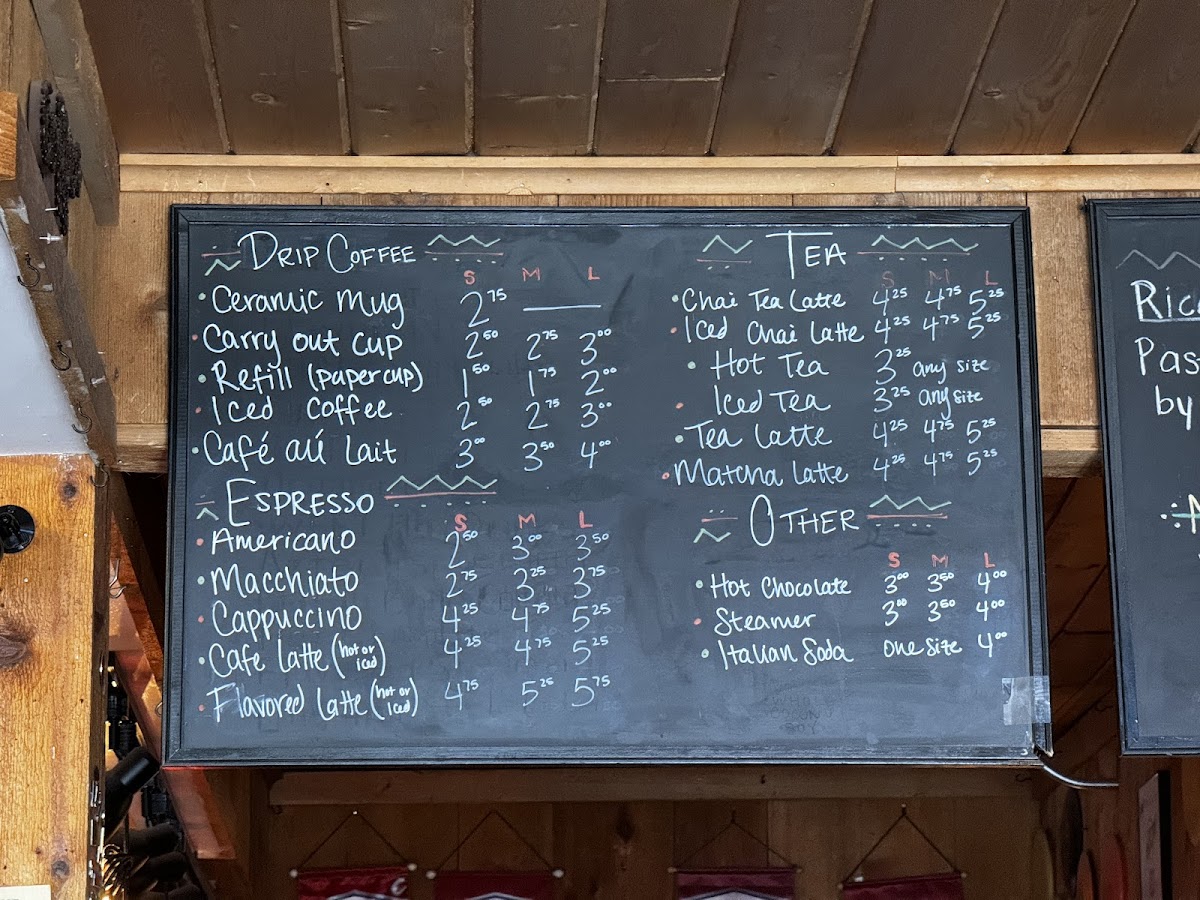 DRIP COFFEE
S M L
• Ceramic mug 2.75 ———
• Carry out cup 2.50 2.75 3.00
• Refill (paper cup) 1.50 1.75 2.00
• Iced coffee 2.50 2.75 3.00
• Café aú Lait 3.00 3.50 4.00
ESPRESSO
S M L
• Americano 2.50 3.00 3.50
• Macchiato 2.75 3.25 3.75
• Cappuccino 4.25 4.75 5.25
• Cafe latte (hot or iced) 4.25 4.75 5.25
• Flavored latte (hot or iced) 4.75 5.25 5.75
TEA
S M L
• Chai Tea Latte 4.25 4.75 5.25
• Iced Chai Latte 4.25 4.75 5.25
• Hot Tea 3.25 any size
• Iced Tea 3.25 any size
• Tea latte 4.25 4.75 5.25
• Matcha latte 4.25 4.75 5.25
OTHER
S M L
• Hot Chocolate 3.00 3.50 4.00
• Steamer 3.00 3.50 4.00
• Italian Soda one size 4.00
Ric
Pas
by